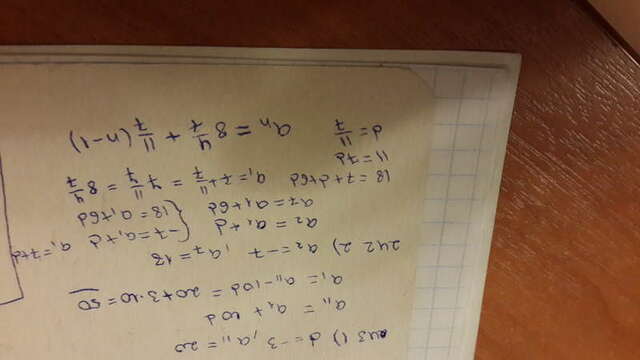 243 1) d = -3, a₁₁ = 20
a₁₁ = a₁ + 10d
a₁ = a₁₁ - 10d = 20 + 3·10 = 50
242 2) a₂ = -7, a₇ = 18
a₂ = a₁ + d { -7 = a₁ + d a₁ = 7+d
a₇ = a₁ + 6d { 18 = a₁ + 6d
18 = 7 + d + 6d a₁ = 7 + 11/7 = 7 11/7 = 8 4/7
11 = 7d
d = 11/7 aₙ = 8 4/7 + 11/7 (n-1)